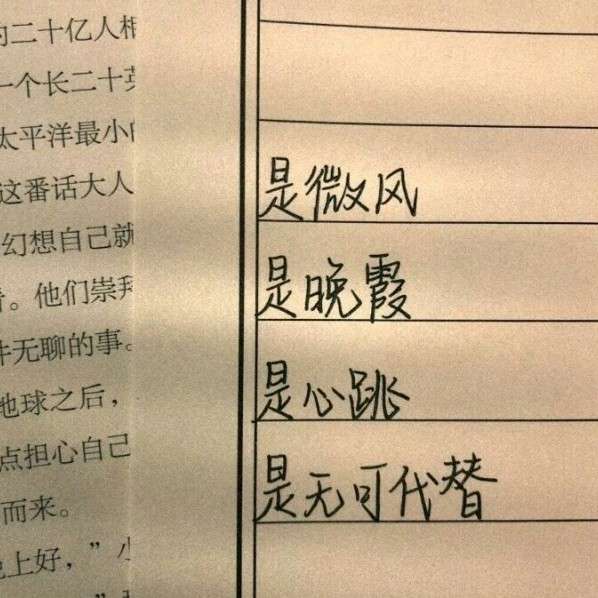 的二十亿人相
一个长二十英
太平洋最小的
这番话大人
幻想自己就
。他们崇拜
件无聊的事。
地球之后，
点担心自己
而来。
晚上好，”小
是微风
是晚霞
是心跳
是无可代替